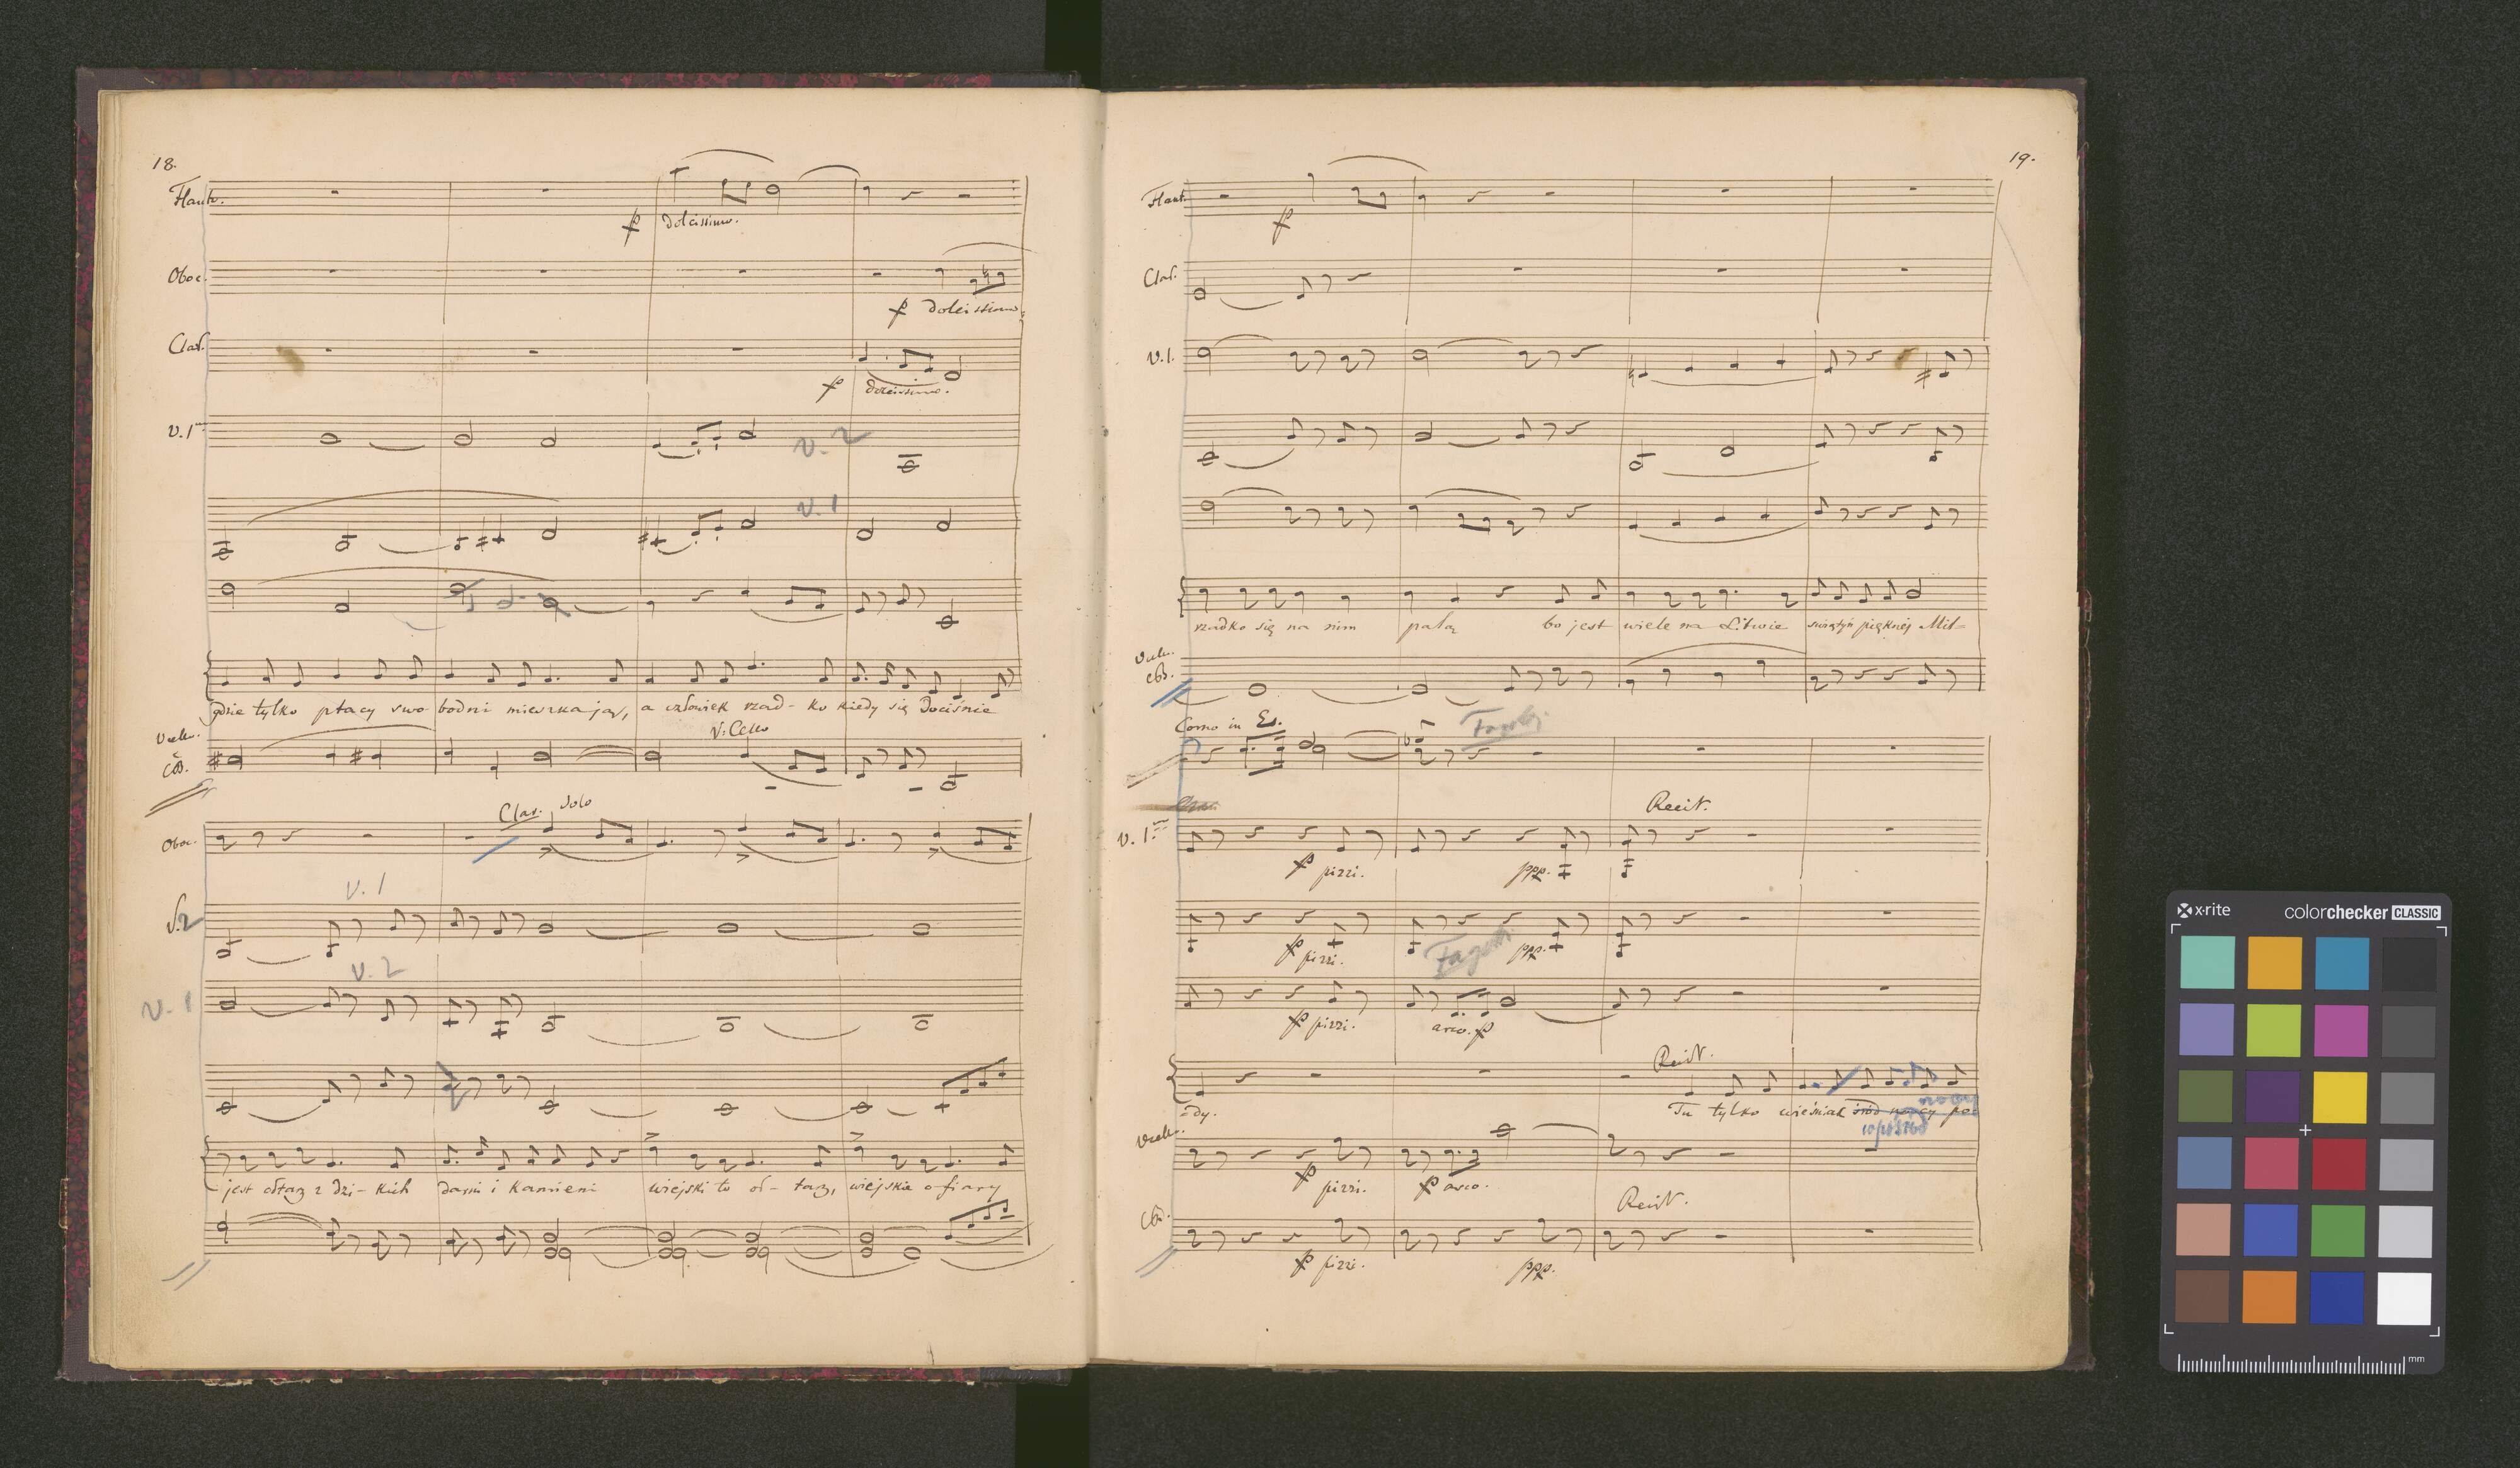 18.
Flauto.
p dolcissimo.
Oboe.
p dolcissimo.
Clar.
p dolcissimo.
V. 1mo
V. 2
V. 1
gdzie tylko ptacy swo- bodni mieszkają, a człowiek rzad- ko kiedy się dociśnie
V. Cello
Vcelo.
CB.
Clar. Solo
Oboe.
V. 1
V. 2
V. 2
V. 1
jest ołtarz z dzi- kich darni i kamieni wiejski to oł- tarz, wiejskie ofiary
19.
Flaut.
p
Clar.
V. 1.
rzadko się na nim palą bo jest wiele na Litwie świątyń pięknéj Mil=
Vcelo.
CB.
Corno in Es.
Fagotti
Recit.
V. 1mo
p pizzi. ppp.
p pizzi. ppp.
Fagotti
p pizzi. arco. p
Recit.
=dy. Tu tylko wieśniak śród nocy po
nocy
wpośród
Vcelo.
p pizzi. p arco.
Recit.
CB.
p pizzi. ppp.
x·rite colorchecker CLASSIC
mm